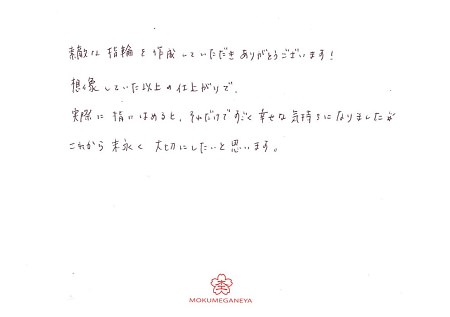 素敵な指輪を作成していただきありがとうございます！
想像していた以上の仕上がりで、
実際に指にはめると、それだけですごく幸せな気持ちになりましたが
これから末永く大切にしたいと思います。
MOKUMEGANEYA